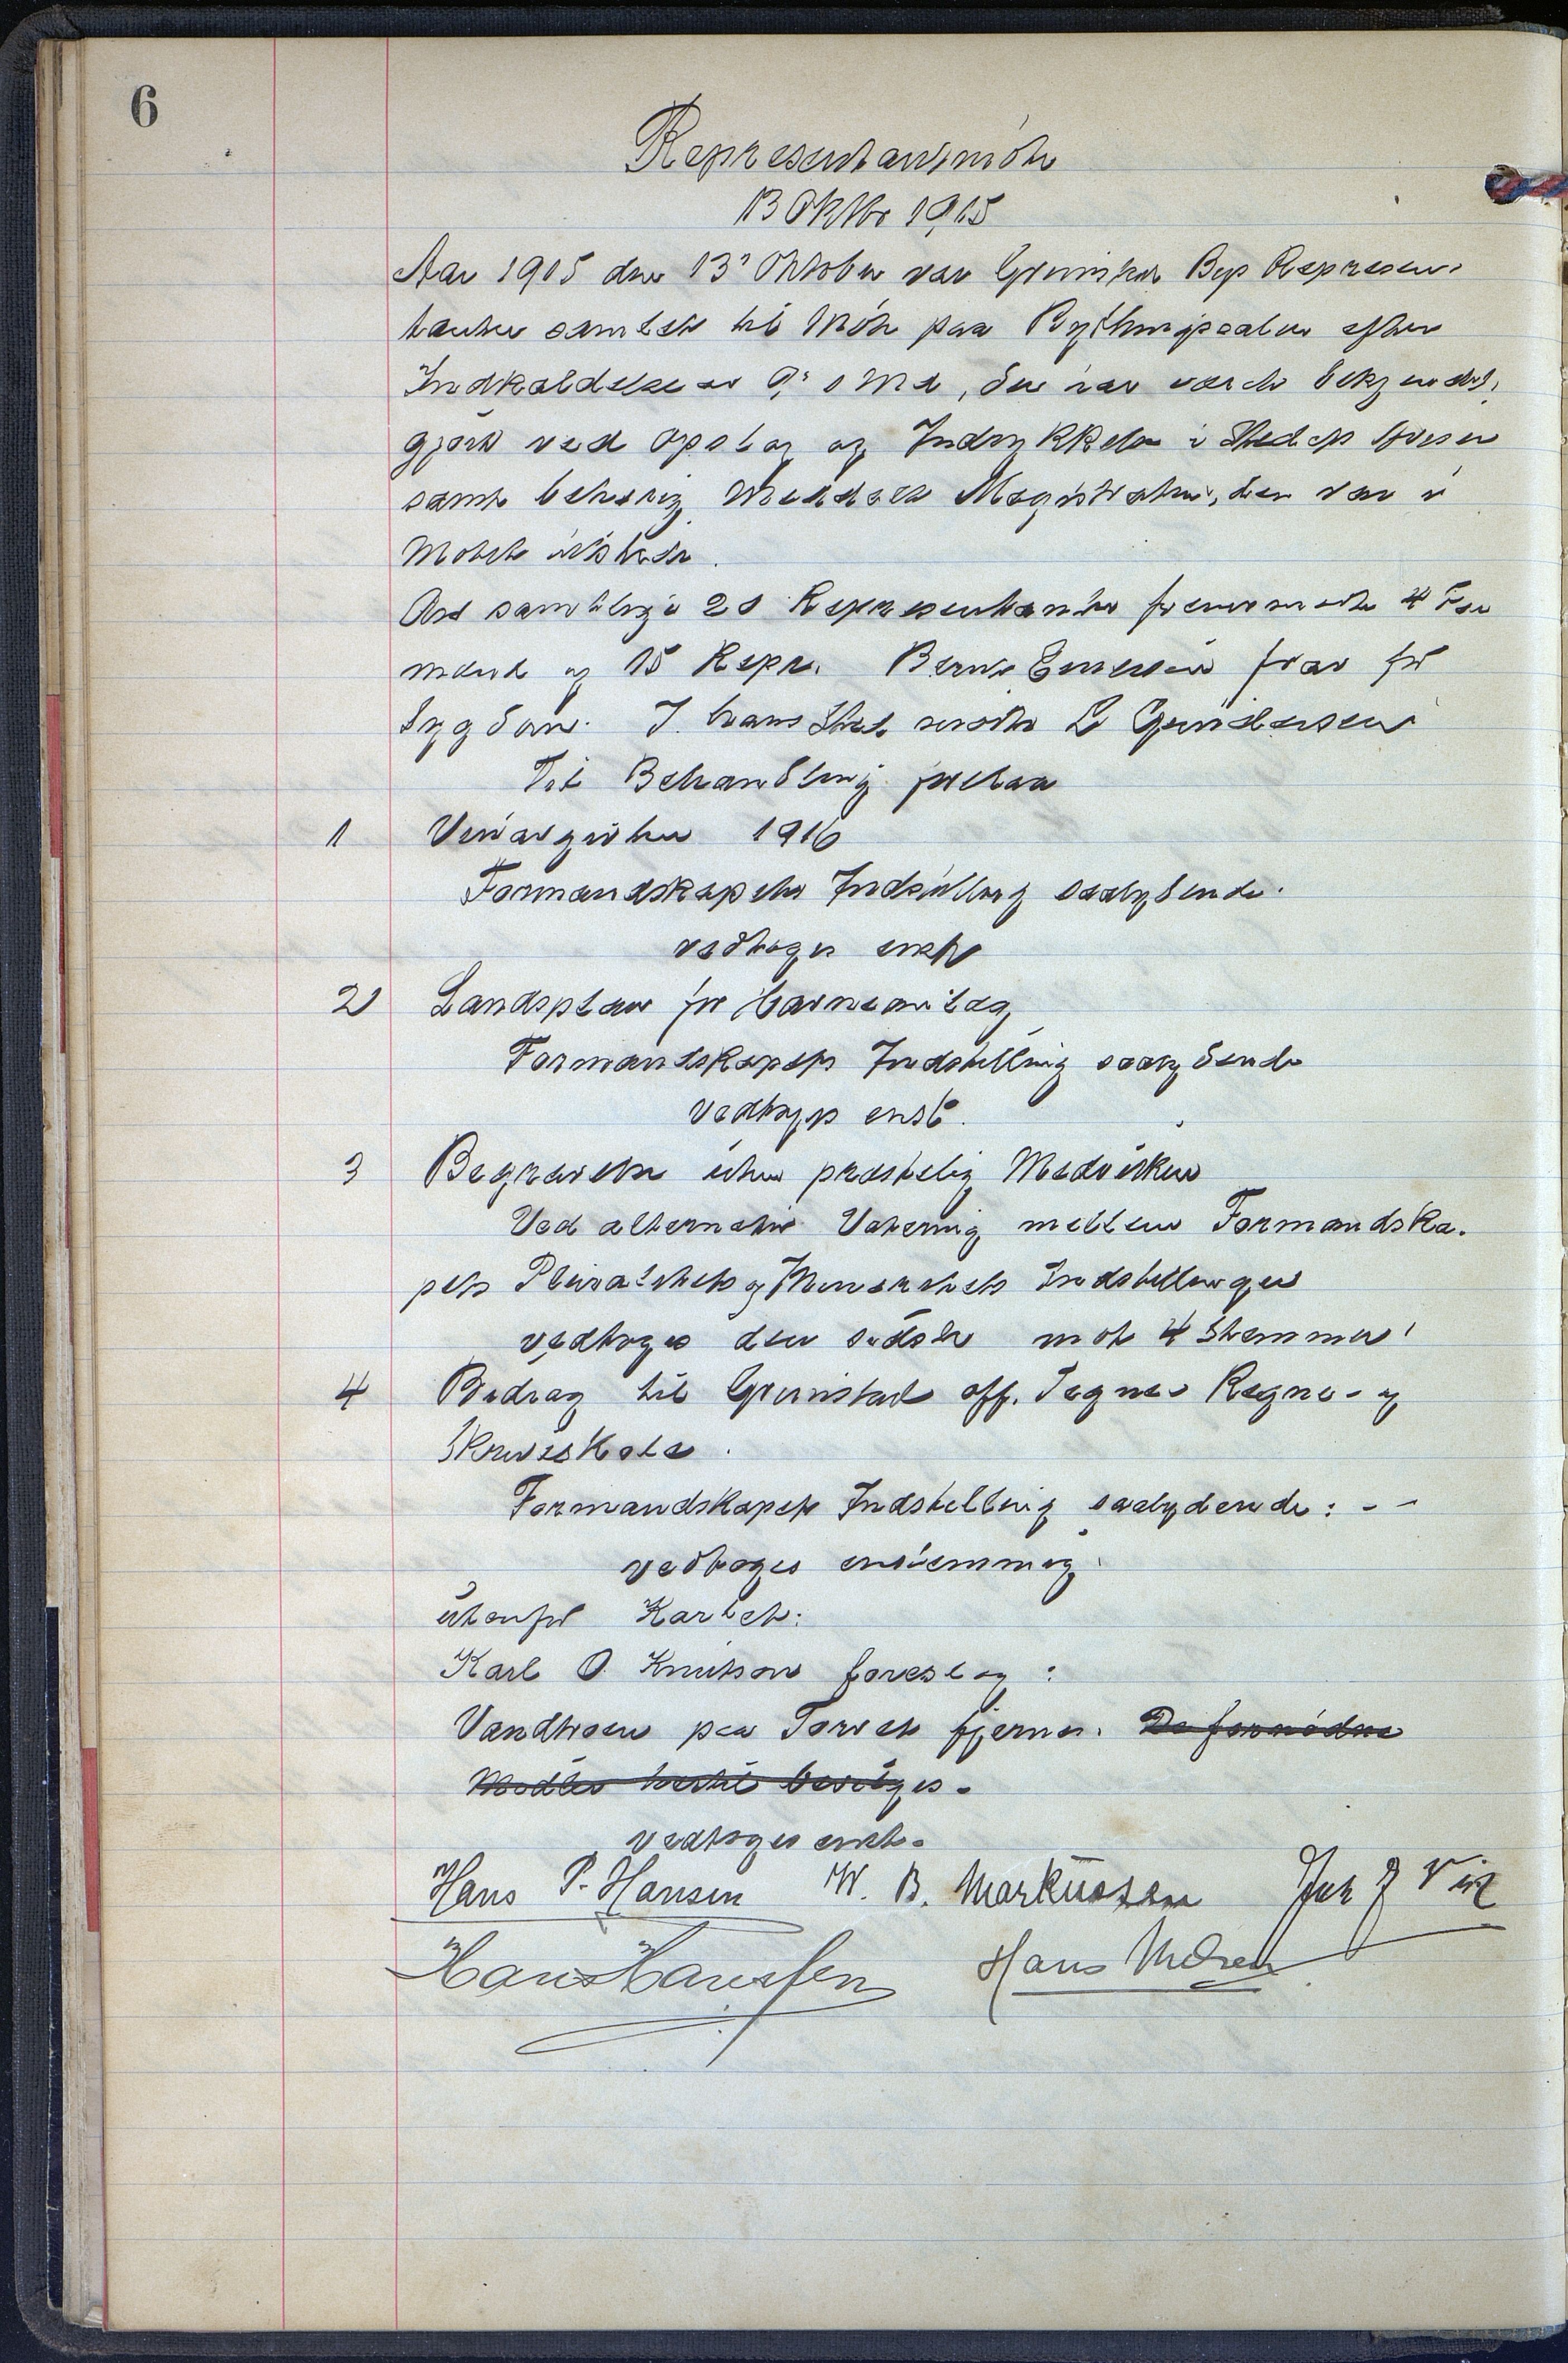 6
Representantmöte
13 Oktbr 1915
Aar 1915 den 13' Oktober var Grimstad Bys Represen-
tanter samlet til Möte paa Bythingssalen efter
Indkaldelse av 9' s Md, der var værd bekjendt-
gjort ved Opslag og Indrykkelse i Stedets Aviser
samt behörig Meddelt Magistraten, der var i
Mötet tilstede.
Av samtlige 20 Repræsentanter fremmødte 4 For
mænd og 15 Repr. Bernt Evensen frav for
Sygdom. I hans Sted mødte L Gundersen
Til Behandling forelaa
1 Vinargivten 1916
Formandskapets Indstilling saalydende.
vedtoges enst
2 Landsplan for barneanlæg
Formandskapets Indstilling saalydende
Vedtages enst.
3 Begravelse uten præstelig Medvirken
Ved alternativ Votering mellem Formandska-
pets Pluralitets og Minoritets Indstillinger
vedtoges den sidste mot 4 Stemmer.
4 Bidrag til Grimstad off. Tegne- Regne- og
Skriveskole.
Formandskapets Indstilling saalydende: - -
vedtoges enstemmig.
utenfor Kartet:
Karl O. Knutson foreslog:
Vandtroen paa Torvet fjernes. De fornødne
Midler hertil bevilges.
vedtoges enst.
Hans P. Hansen W. B. Markussen
Hans Hanssen Hans